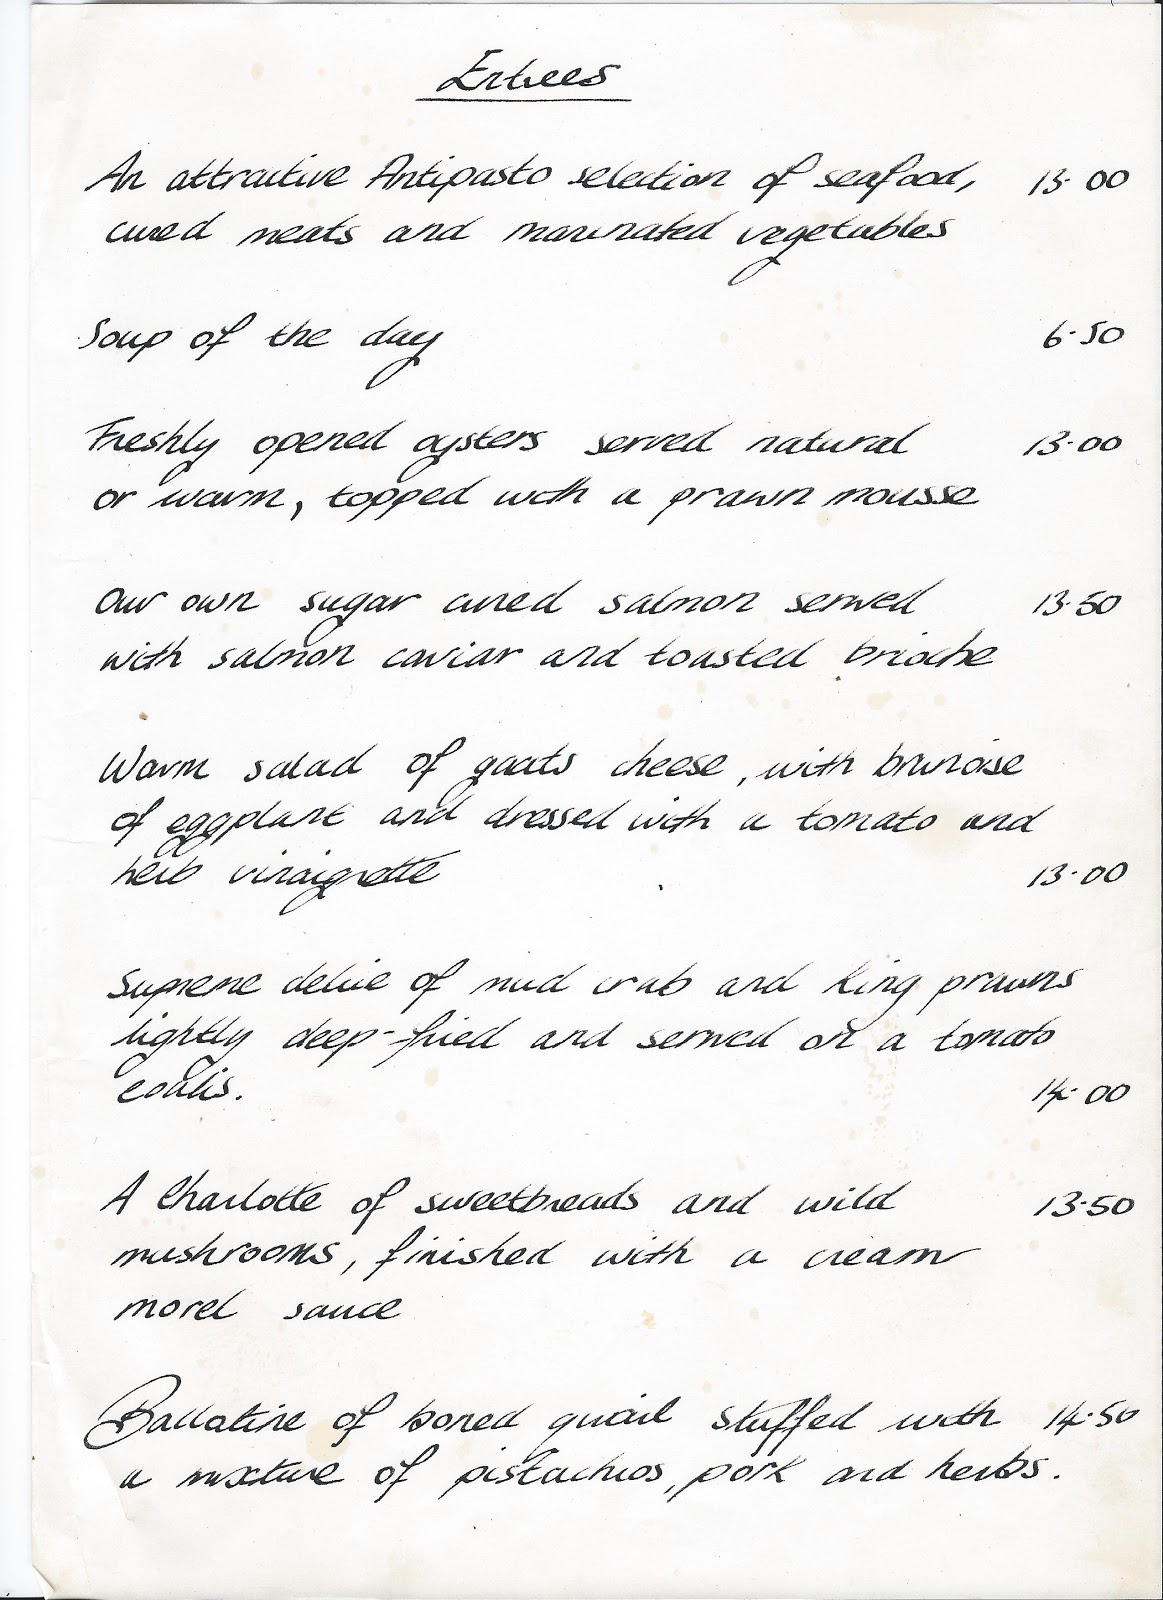 Entrees
An attractive Antipasto selection of seafood, 13·00
cured meats and marinated vegetables
Soup of the day 6·50
Freshly opened oysters served natural 13·00
or warm, topped with a prawn mousse
Our own sugar cured salmon served 13·50
with salmon caviar and toasted brioche
Warm salad of goats cheese, with brunoise
of eggplant and dressed with a tomato and
herb vinaigrette 13·00
Supreme delice of mud crab and King prawns
lightly deep-fried and served on a tomato
coulis. 14·00
A Charlotte of sweetbreads and wild 13·50
mushrooms, finished with a cream
morel sauce
Ballatine of boned quail stuffed with 14·50
a mixture of pistachios, pork and herbs.